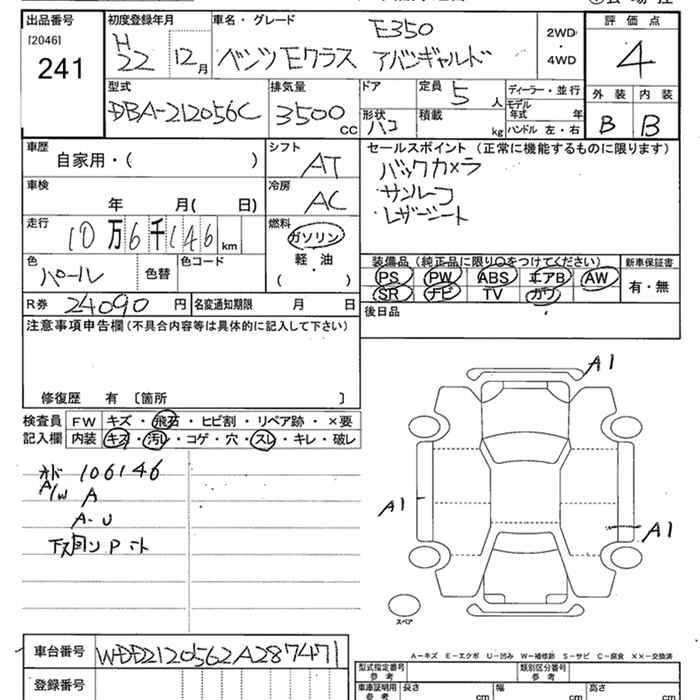 出品番号 初度登録年月 車名・グレード 評価点
[2046] H E350 2WD
241 22 12月 ベンツEクラス アバンギャルド ・ 4
4WD
型式 排気量 ドア 定員 5 人 ディーラー・並行 外装 内装
DBA-212056C 3500 cc 形状 ハコ 積載 kg モデル年式 年 B B
ハンドル 左・右
車歴 シフト セールスポイント (正常に機能するものに限ります)
自家用・( ) AT バックカメラ
車検 冷房 サンルーフ
年 月( 日) AC レザーシート
走行 燃料
10万6千146 km ガソリン
軽・油 装備品(純正品に限り○をつけてください) 新車保証書
色 色替 色コード ( ) PS PW ABS エアB AW 有・無
パール SR ナビ TV カワ
R券 24090 円 名変通知期限 月 日 後日品
注意事項申告欄(不具合内容等は具体的に記入して下さい)
修復歴 有 〔箇所 〕
検査員 FW キズ・飛石・ヒビ割・リペア跡・×要
記入欄 内装 キズ・汚レ・コゲ・穴・スレ・キレ・破レ
A1
オド 106146
A/W A
A1
A-U
A1
スペア
車台番号 WDD2120562A287471
A-キズ E-エクボ U-凹み W-補修跡 S-サビ C-腐食 ××-交換済
登録番号 型式指定番号 参考 類別区分番号 参考
車庫証明用 参考 長さ cm 幅 cm 高さ cm